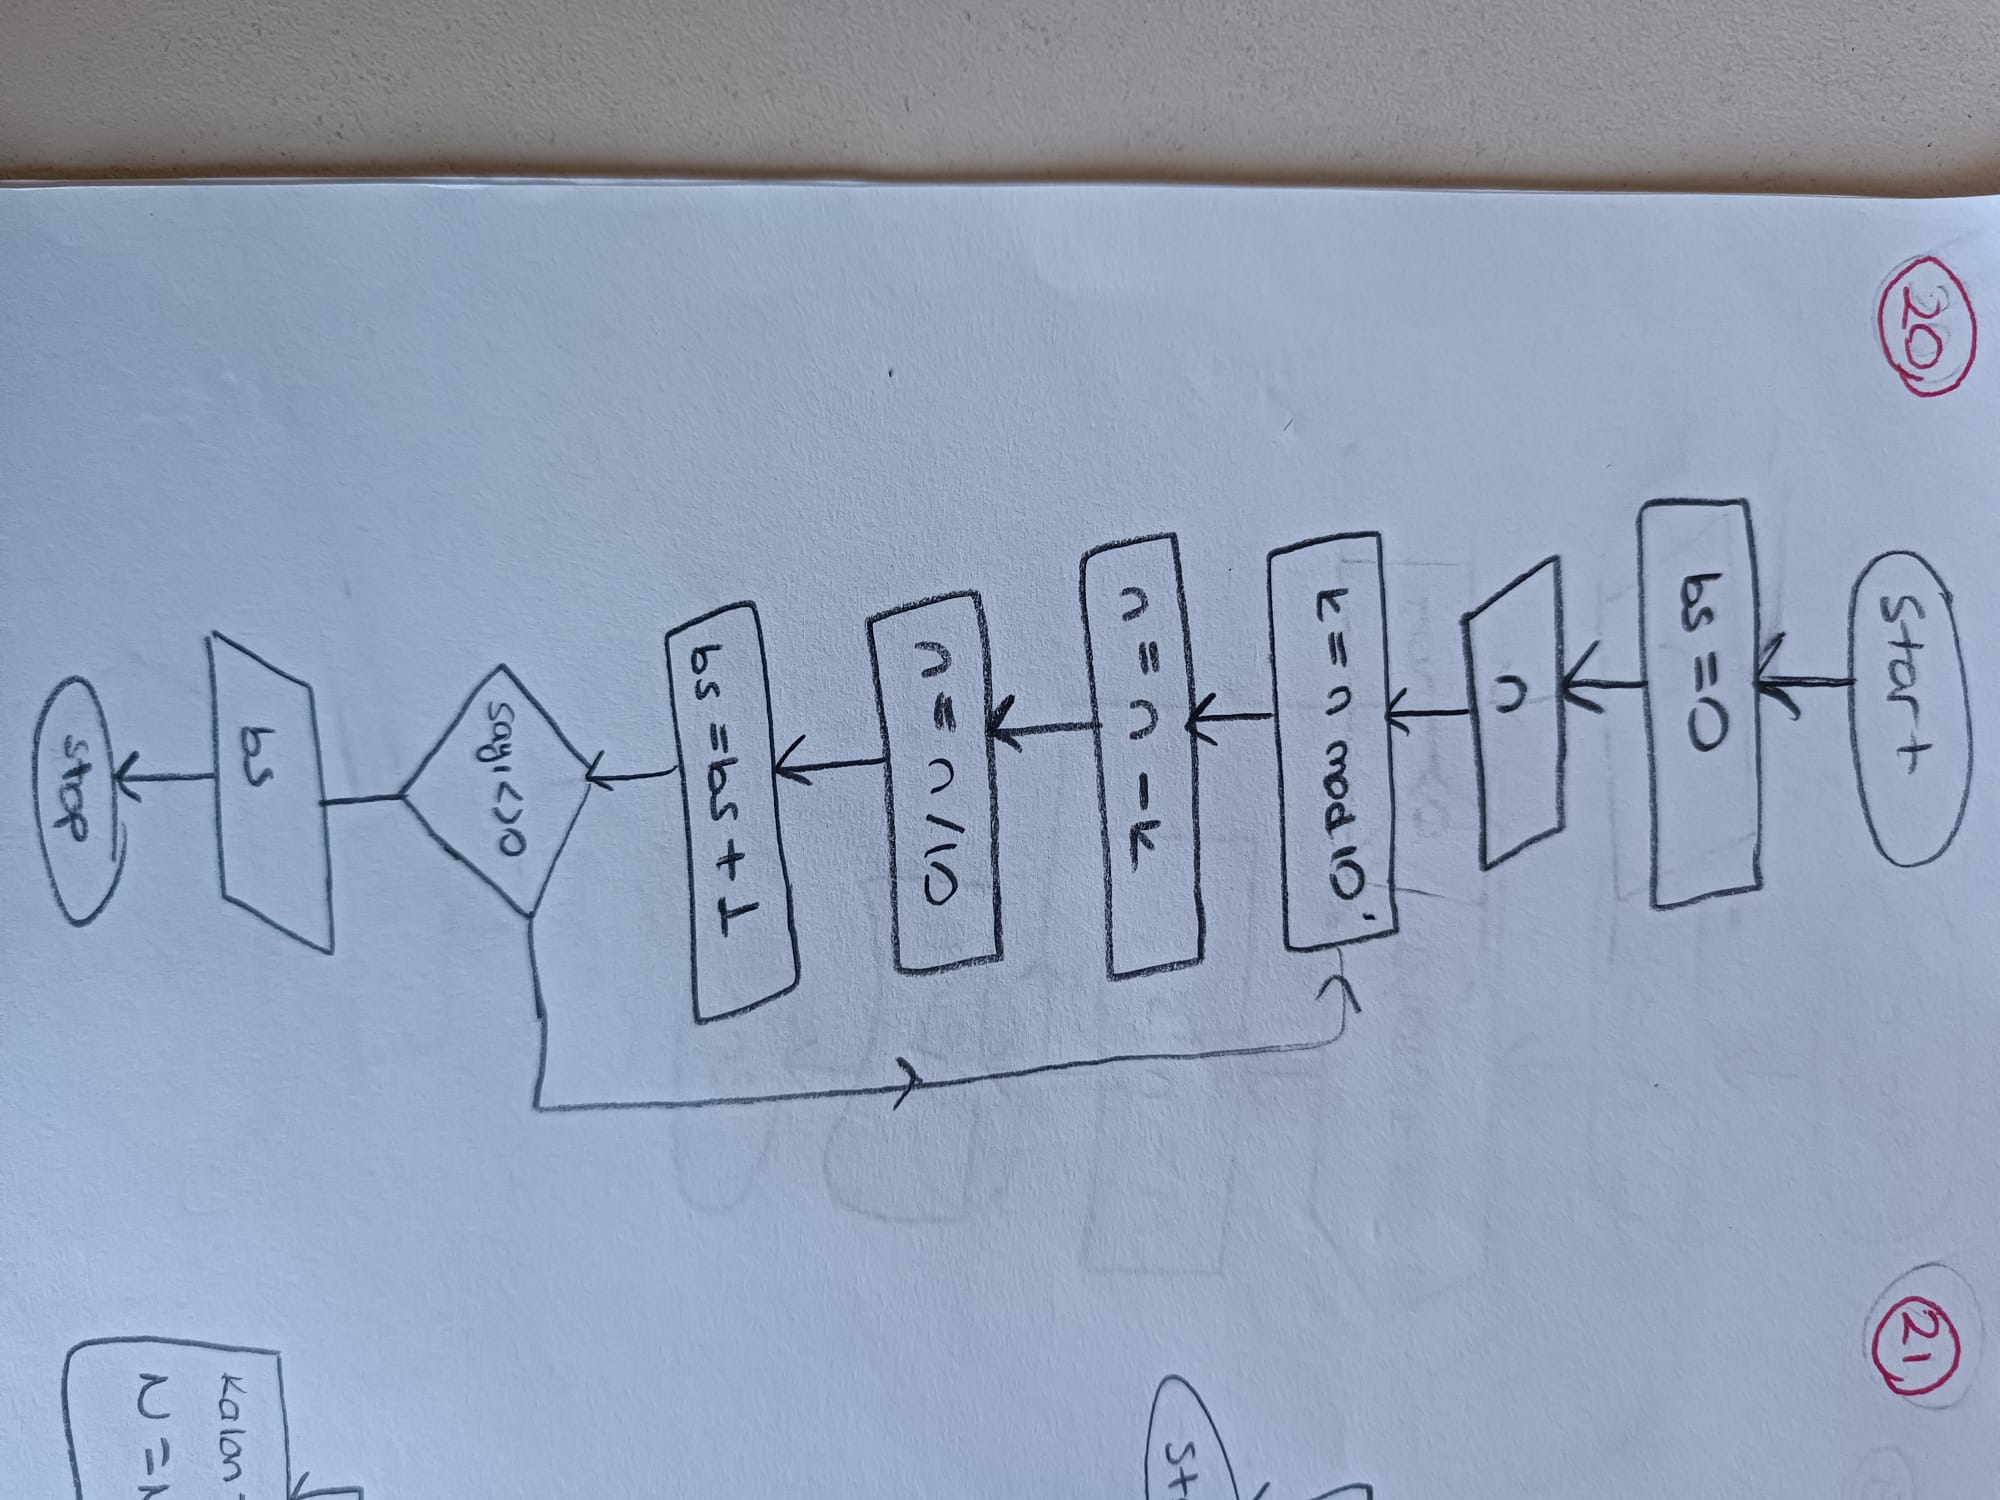 20
Start
bs = 0
n
k = n mod 10
n = n - k
n = n / 10
bs = bs + 1
sayi <> 0
bs
stop
21
Kalan
N = N